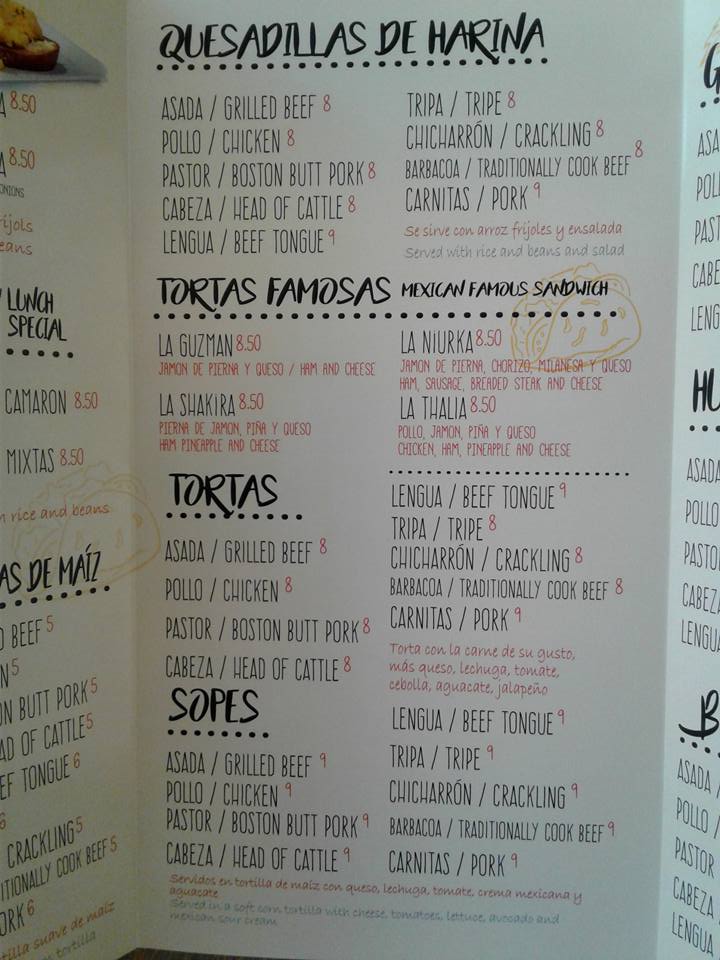 QUESADILLAS DE HARINA
ASADA / GRILLED BEEF 8
POLLO / CHICKEN 8
PASTOR / BOSTON BUTT PORK 8
CABEZA / HEAD OF CATTLE 8
LENGUA / BEEF TONGUE 9
TRIPA / TRIPE 8
CHICHARRÓN / CRACKLING 8
BARBACOA / TRADITIONALLY COOK BEEF 8
CARNITAS / PORK 9
Se sirve con arroz frijoles y ensalada
Served with rice and beans and salad
TORTAS FAMOSAS MEXICAN FAMOUS SANDWICH
LA GUZMAN 8.50
JAMON DE PIERNA Y QUESO / HAM AND CHEESE
LA SHAKIRA 8.50
PIERNA DE JAMON, PIÑA Y QUESO
HAM PINEAPPLE AND CHEESE
LA NIURKA 8.50
JAMON DE PIERNA, CHORIZO, MILANESA Y QUESO
HAM, SAUSAGE, BREADED STEAK AND CHEESE
LA THALIA 8.50
POLLO, JAMON, PIÑA Y QUESO
CHICKEN, HAM, PINEAPPLE AND CHEESE
TORTAS
ASADA / GRILLED BEEF 8
POLLO / CHICKEN 8
PASTOR / BOSTON BUTT PORK 8
CABEZA / HEAD OF CATTLE 8
LENGUA / BEEF TONGUE 9
TRIPA / TRIPE 8
CHICHARRÓN / CRACKLING 8
BARBACOA / TRADITIONALLY COOK BEEF 8
CARNITAS / PORK 9
Torta con la carne de su gusto,
más queso, lechuga, tomate,
cebolla, aguacate, jalapeño
SOPES
ASADA / GRILLED BEEF 9
POLLO / CHICKEN 9
PASTOR / BOSTON BUTT PORK 9
CABEZA / HEAD OF CATTLE 9
LENGUA / BEEF TONGUE 9
TRIPA / TRIPE 9
CHICHARRÓN / CRACKLING 9
BARBACOA / TRADITIONALLY COOK BEEF 9
CARNITAS / PORK 9
Servidos en tortilla de maíz con queso, lechuga, tomate, crema mexicana y
aguacate
Served in a soft corn tortilla with cheese, tomatoes, lettuce, avocado and
mexican sour cream
8.50
8.50
LUNCH
SPECIAL
CAMARON 8.50
MIXTAS 8.50
rice and beans
DE MAÍZ
BEEF 5
5
BUTT PORK 5
OF CATTLE 5
TONGUE 6
6
CRACKLING 5
COOK BEEF 5
6
suave de maíz
tortilla
POLLO
PASTOR
CABEZA
LENGUA